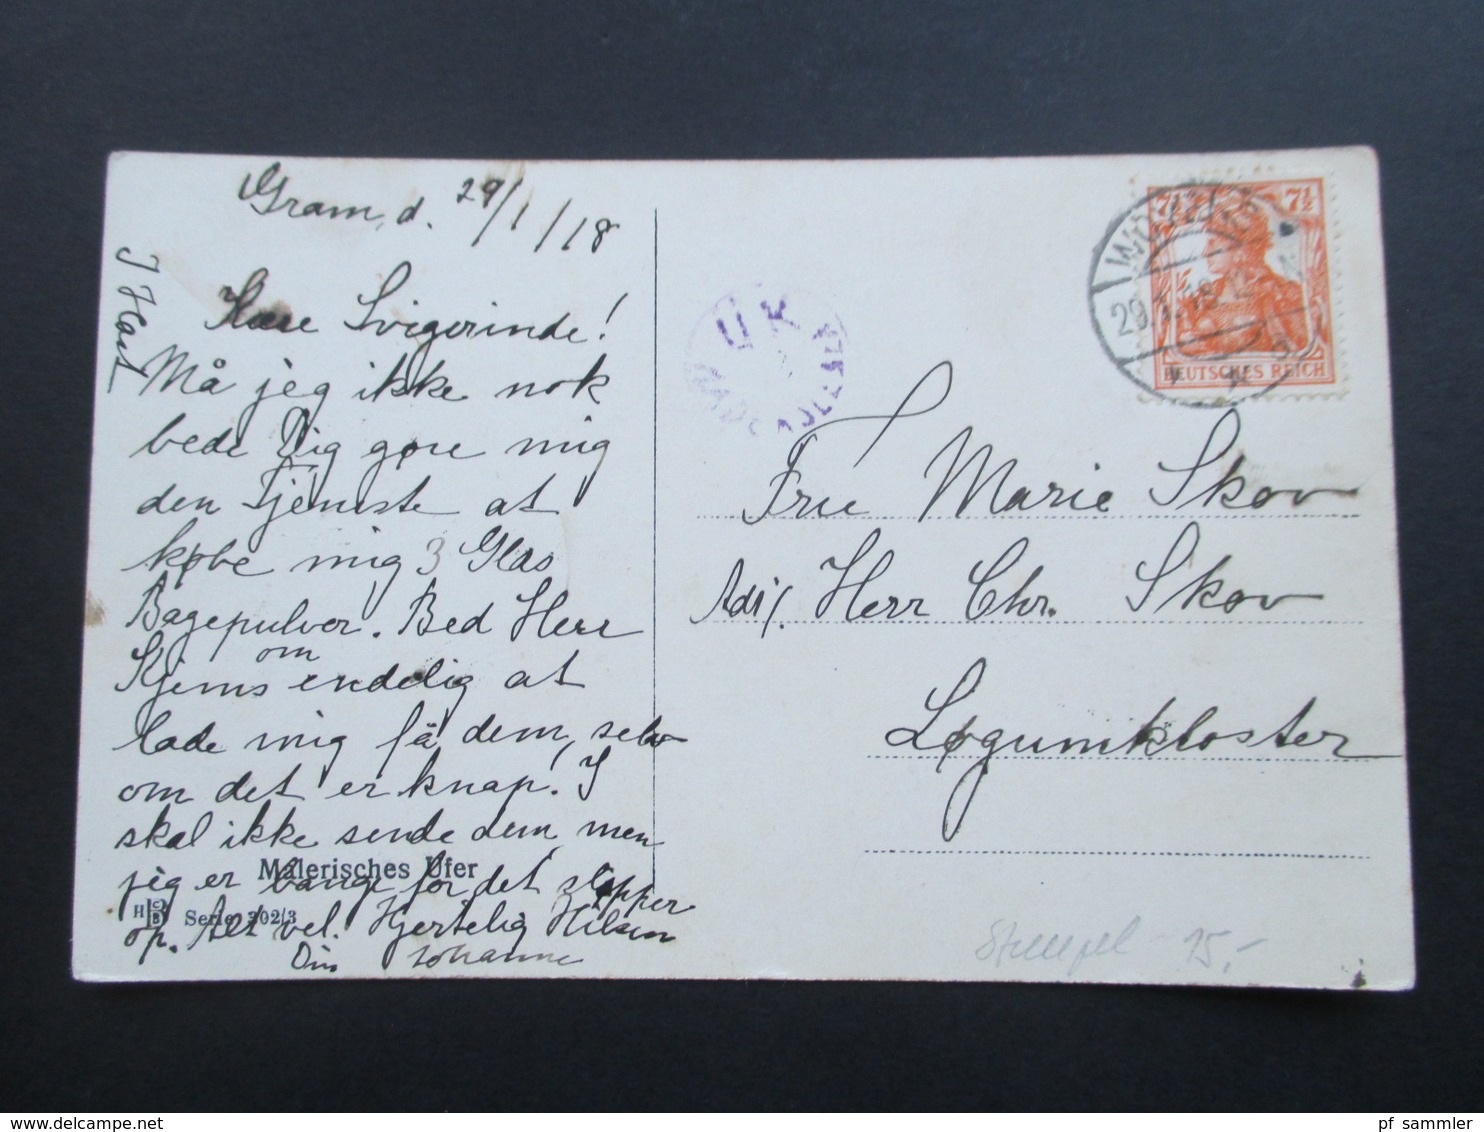 Gram, d. 29/1/18
I Hast
Kære Svigerinde!
Må jeg ikke nok
bede Dig gøre mig
den Tjeneste at
købe mig 3 Glas
Bagepulver. Bed Herr
Kjems om endelig at
lade mig få dem, selv
om det er knapt. I
skal ikke sende dem, men
jeg er bange for det slipper
op. Alt vel. Hjertelig Hilsen
Din Johanne
Malerisches Ufer
HCB Serie 302/3
ÜK
7½ 7½
29.1.18
DEUTSCHES REICH
Frue Marie Skov
Adr. Herr Chr. Skov
Løgumkloster
Stempel 15,-
pf_sammler